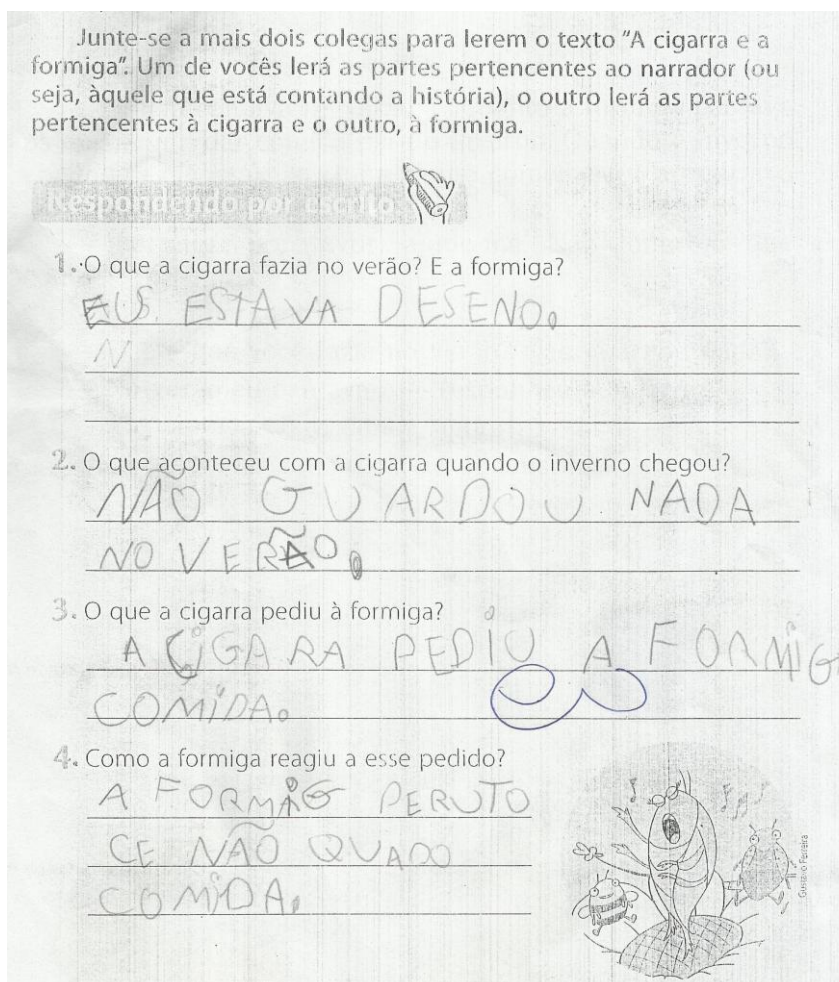 Junte-se a mais dois colegas para lerem o texto "A cigarra e a
formiga". Um de vocês lerá as partes pertencentes ao narrador (ou
seja, àquele que está contando a história), o outro lerá as partes
pertencentes à cigarra e o outro, à formiga.
Respondendo por escrito
1. O que a cigarra fazia no verão? E a formiga?
EUS. ESTAVA DESENO.
N
2. O que aconteceu com a cigarra quando o inverno chegou?
NÃO GUARDOU NADA
NO VERÃO.
3. O que a cigarra pediu à formiga?
A ÇIGARA PEDIU A FORMIG
COMIDA.
4. Como a formiga reagiu a esse pedido?
A FORMIG PERUTO
CE NÃO QUADO
COMIDA.
Gustavo Ferreira